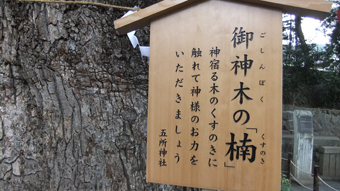 御神木の「楠」
ごしんぼく
くすのき
神宿る木のくすのきに
触れて神様のお力を
いただきましょう
五所神社